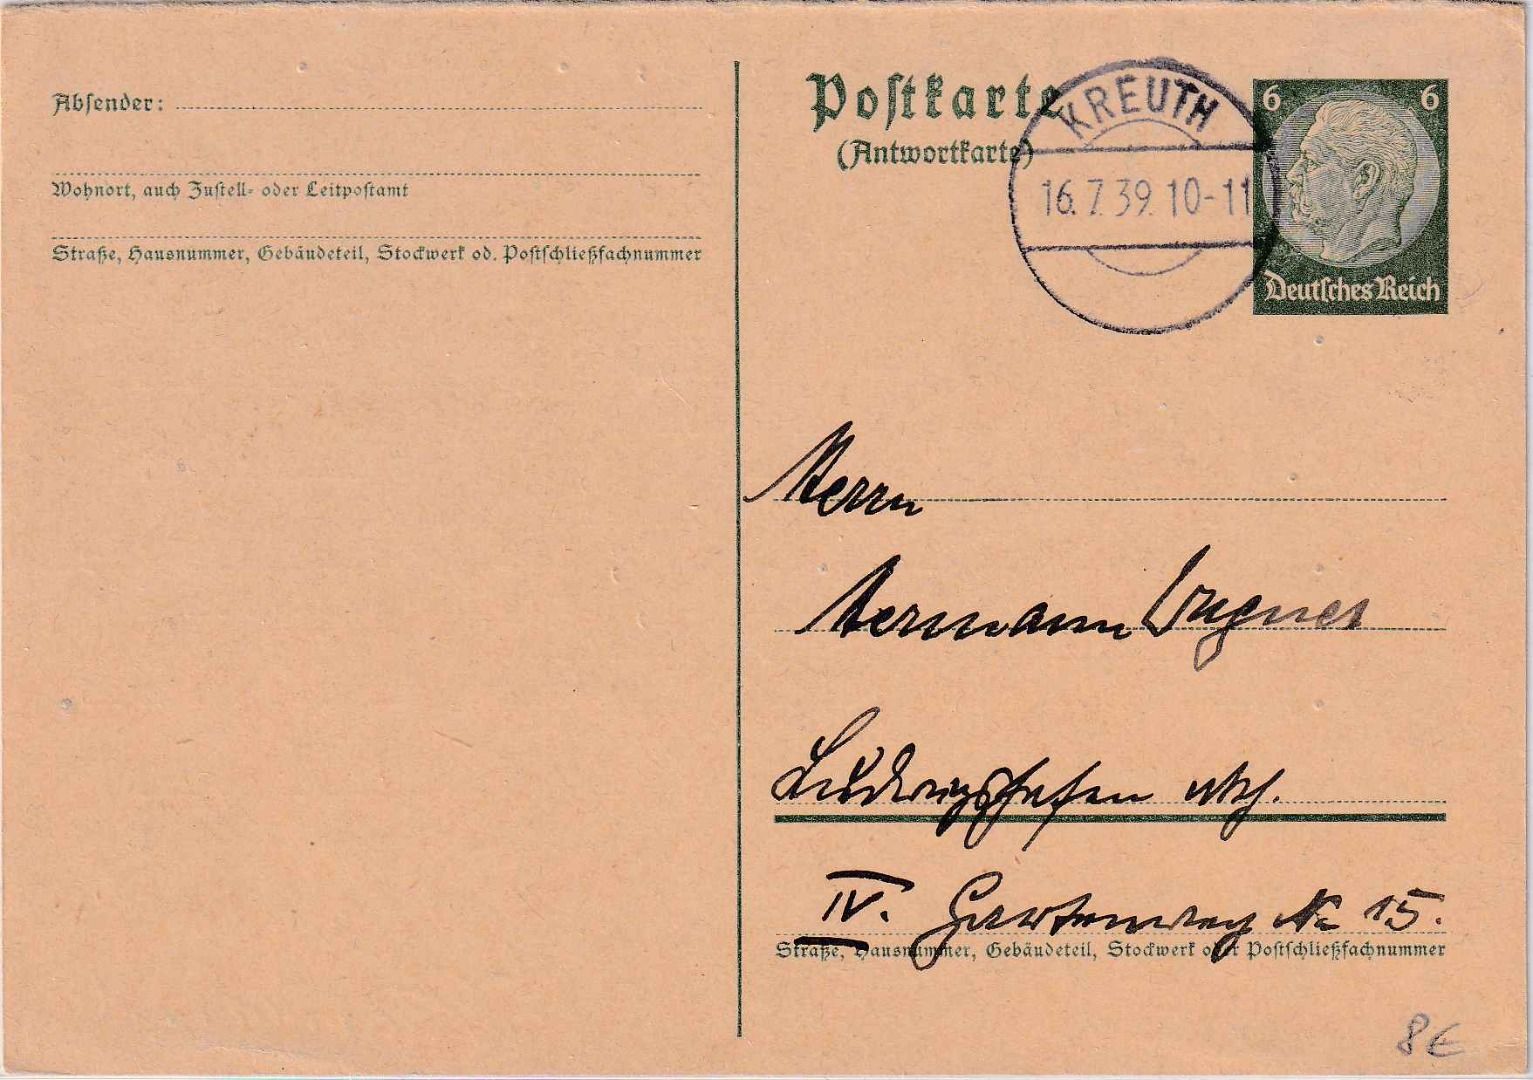 Absender:
Wohnort, auch Zustell- oder Leitpostamt
Straße, Hausnummer, Gebäudeteil, Stockwerk od. Postschließfachnummer
Postkarte
(Antwortkarte)
KREUTH
16.7.39.10-11
6 6
Deutsches Reich
Herrn
Hermann Wagner
Ludwigshafen a/Rh.
IV. Gartenweg No 15.
Straße, Hausnummer, Gebäudeteil, Stockwerk oder Postschließfachnummer
8€